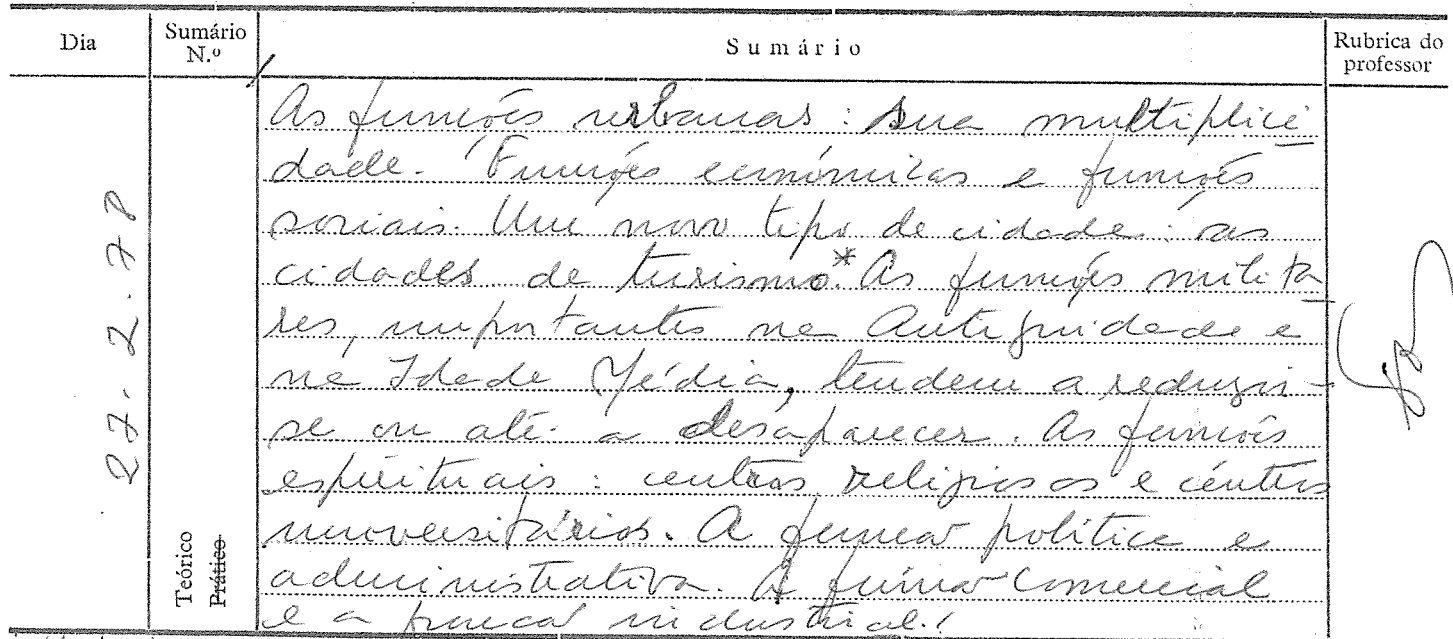 Dia
Sumário N.º
Sumário
Rubrica do professor
27.2.78
Teórico
Prático
As funções urbanas: sua multiplici-
dade. Funções económicas e funções
sociais. Um novo tipo de cidade: as
cidades de turismo.* As funções milita-
res, importantes na Antiguidade e
na Idade Média, tendem a reduzir-
se ou até a desaparecer. As funções
espirituais: centros religiosos e centros
universitários. A função política e
administrativa. A função comercial
e a função industrial.